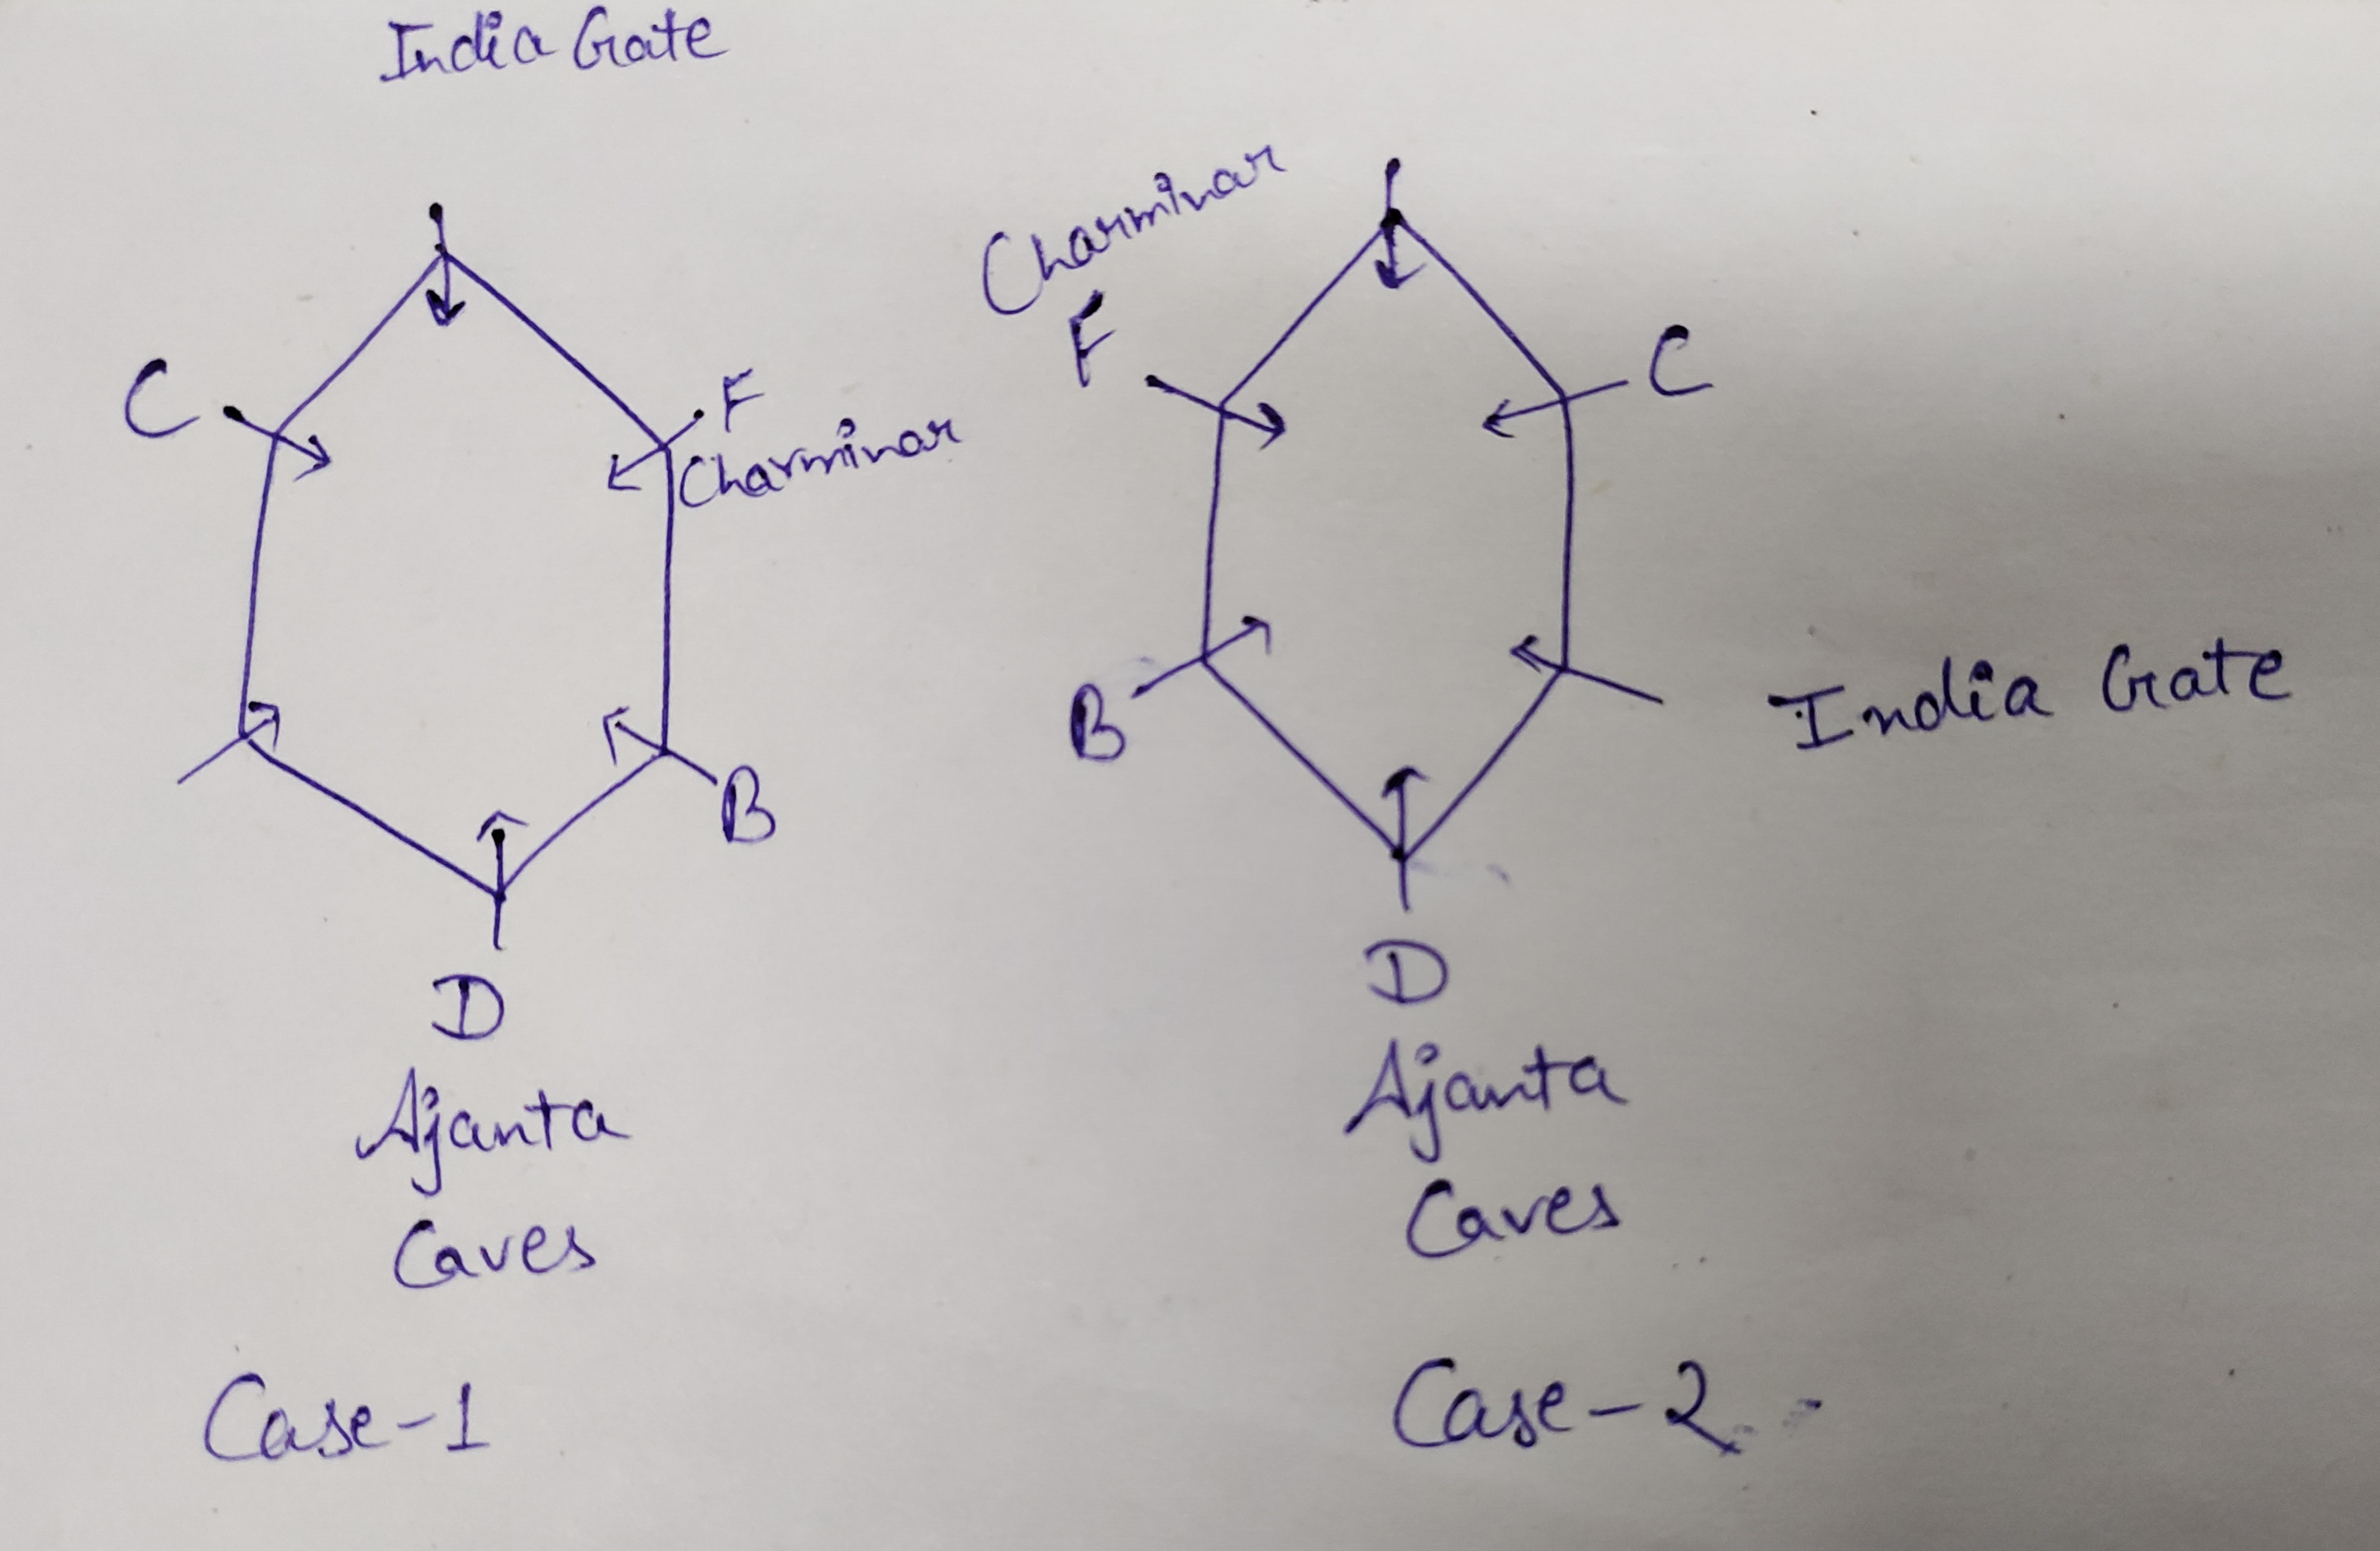 India Gate
C
F
Charminar
B
D
Ajanta
Caves
Case-1
Charminar
F
C
B
India Gate
D
Ajanta
Caves
Case-2